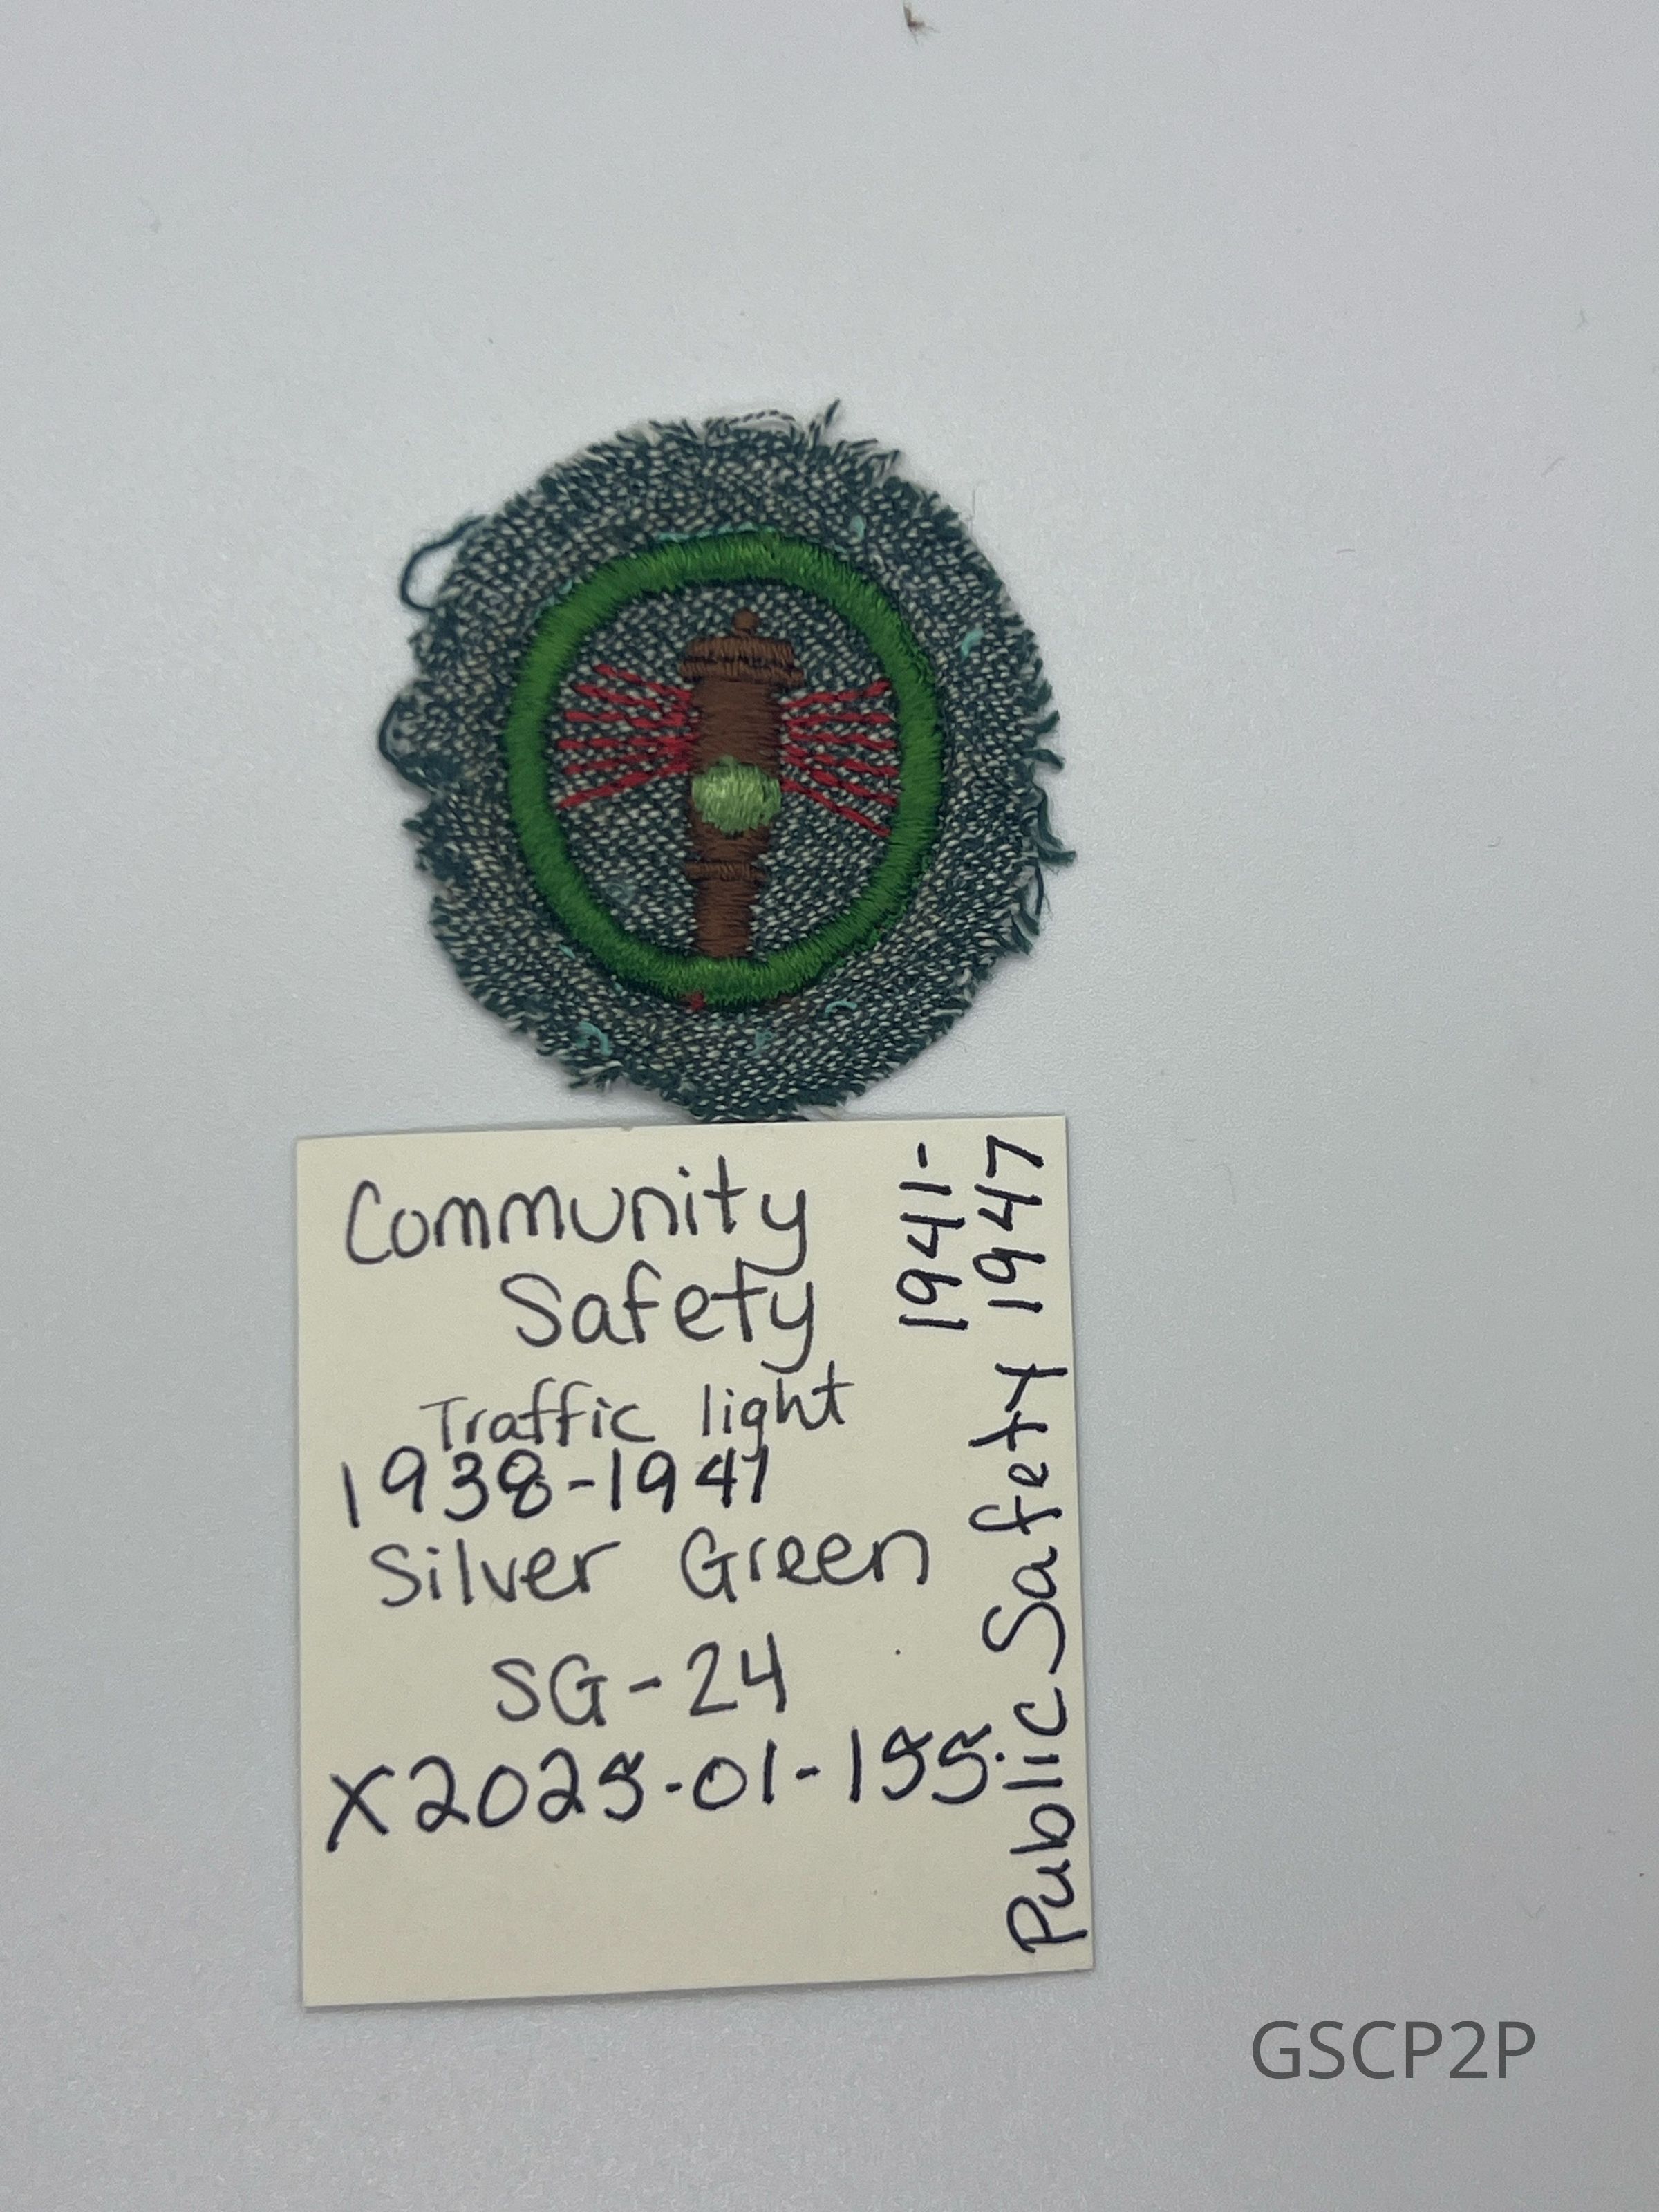 Community
Safety
Traffic light
1938-1941
Silver Green
SG-24
X2025-01-155
Public Safety 1941-
1947
GSCP2P